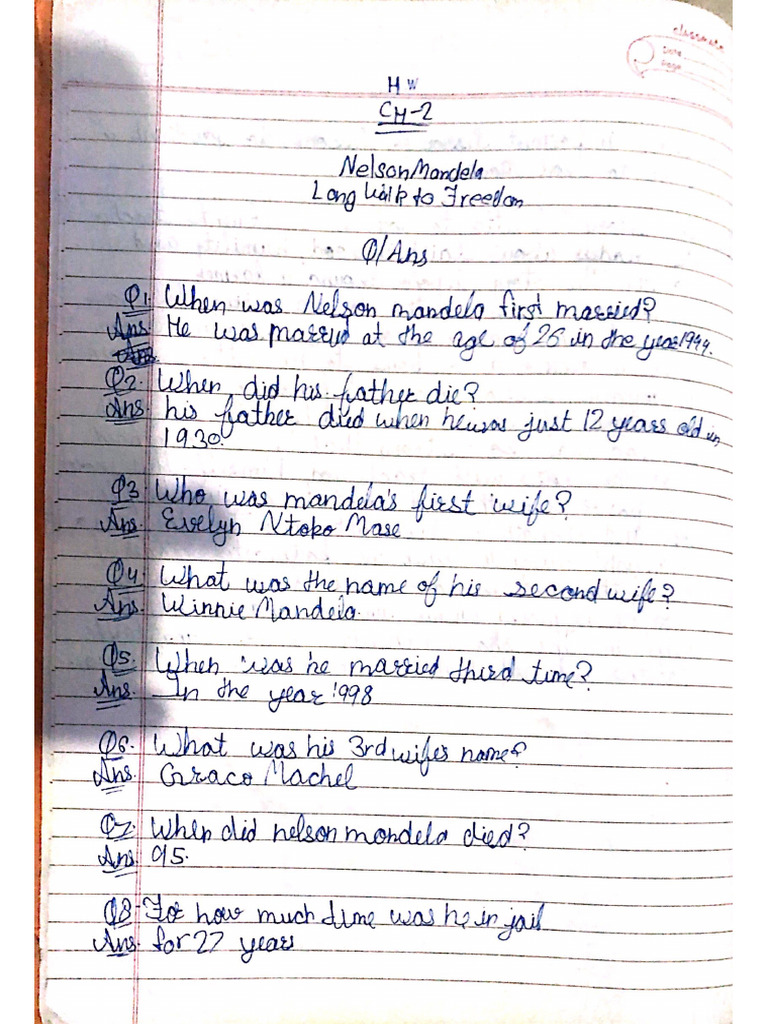 classmate
Date
Page
HW
CH-2
Nelson Mandela
Long Walk to Freedom
Q/Ans
Q1. When was Nelson mandela first married?
Ans He was married at the age of 26 in the year 1944.
Ans.
Q2. When did his father die?
Ans his father died when he was just 12 years old in
1930.
Q3 Who was mandela's first wife?
Ans. Evelyn Ntoko Mase
Q4 What was the name of his second wife?
Ans. Winnie Mandela.
Q5. When was he married third time?
Ans. In the year 1998
Q6. What was his 3rd wifes name?
Ans. Graco Machel
Q7. When did nelson mandela died?
Ans 95.
Q8 For how much time was he in jail
Ans. for 27 years